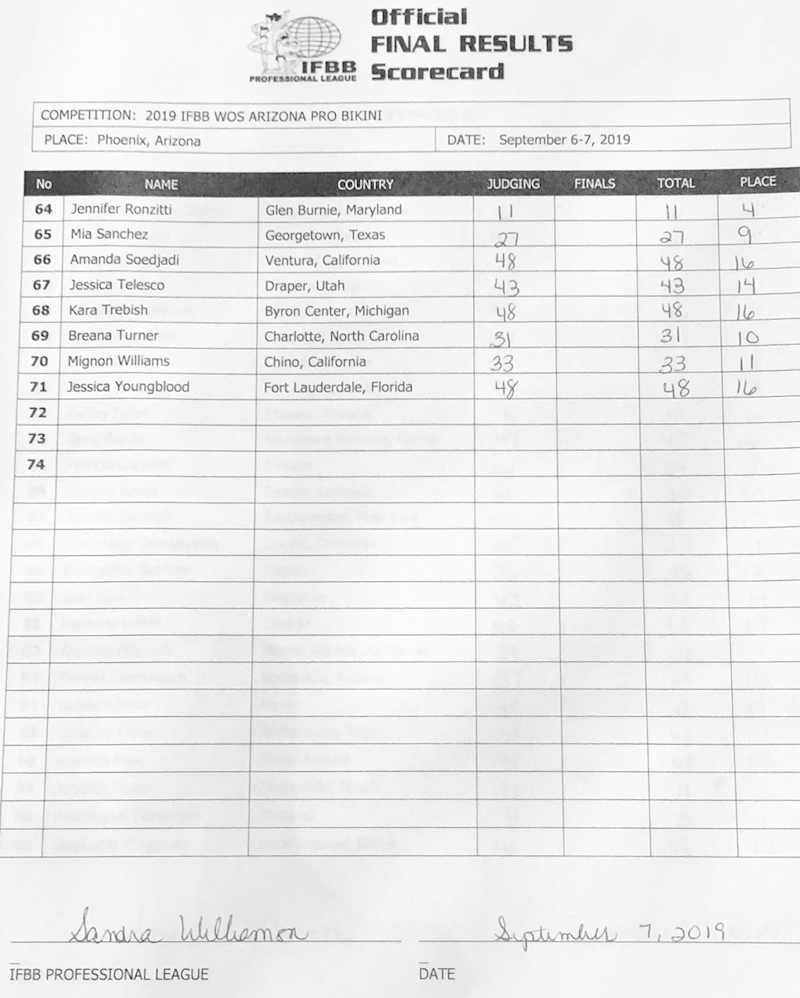 Official
FINAL RESULTS
Scorecard
IFBB
PROFESSIONAL LEAGUE
COMPETITION: 2019 IFBB WOS ARIZONA PRO BIKINI
PLACE: Phoenix, Arizona DATE: September 6-7, 2019
No NAME COUNTRY JUDGING FINALS TOTAL PLACE
64 Jennifer Ronzitti Glen Burnie, Maryland 11 11 4
65 Mia Sanchez Georgetown, Texas 27 27 9
66 Amanda Soedjadi Ventura, California 48 48 16
67 Jessica Telesco Draper, Utah 43 43 14
68 Kara Trebish Byron Center, Michigan 48 48 16
69 Breana Turner Charlotte, North Carolina 31 31 10
70 Mignon Williams Chino, California 33 33 11
71 Jessica Youngblood Fort Lauderdale, Florida 48 48 16
72
73
74
Sandra Williamson September 7, 2019
IFBB PROFESSIONAL LEAGUE DATE